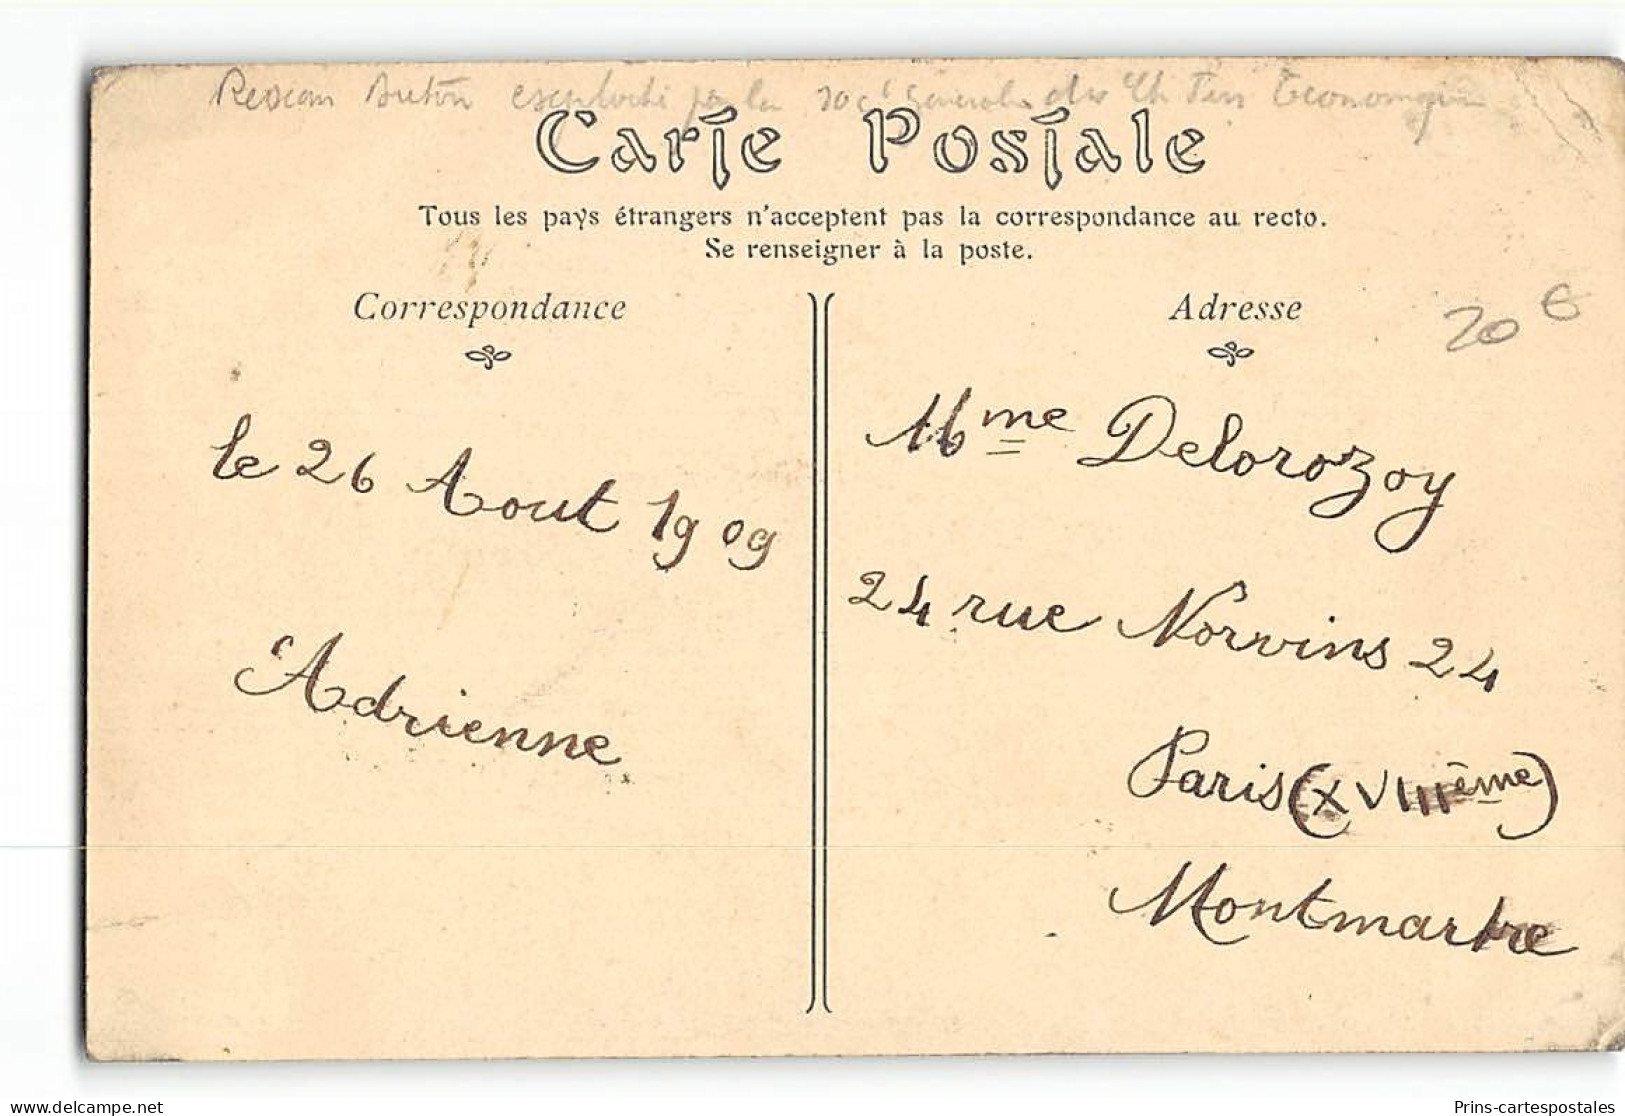 Reseau Breton exploité par la Soc. Générale des Ch Fers Economiques
Carte Postale
Tous les pays étrangers n'acceptent pas la correspondance au recto.
Se renseigner à la poste.
Correspondance
Adresse
20 €
le 26 Aout 1909
Adrienne
Mme Delorozoy
24 rue Norvins 24
Paris (XVIIIème)
Montmartre
www.delcampe.net
Prins-cartespostales